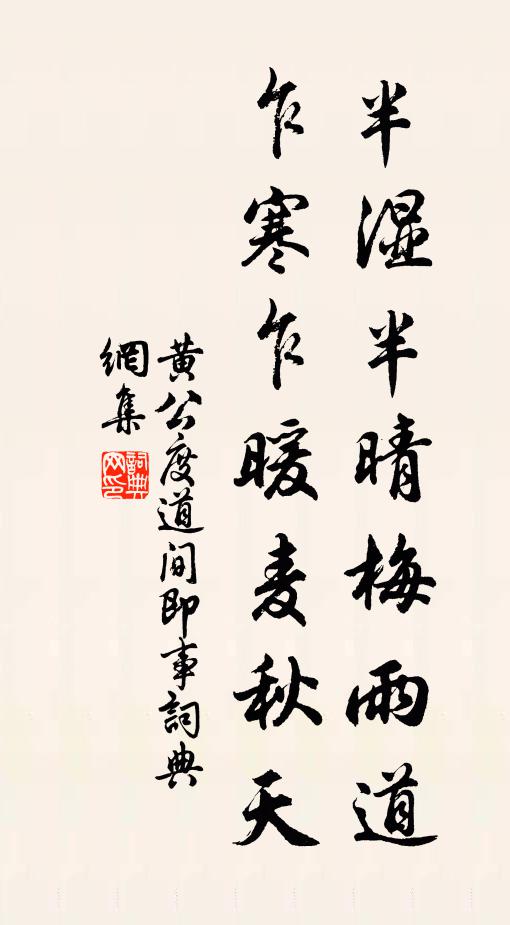 半湿半晴梅雨道
乍寒乍暖麦秋天
黄公度道间即事詞典
網集
詞典網印